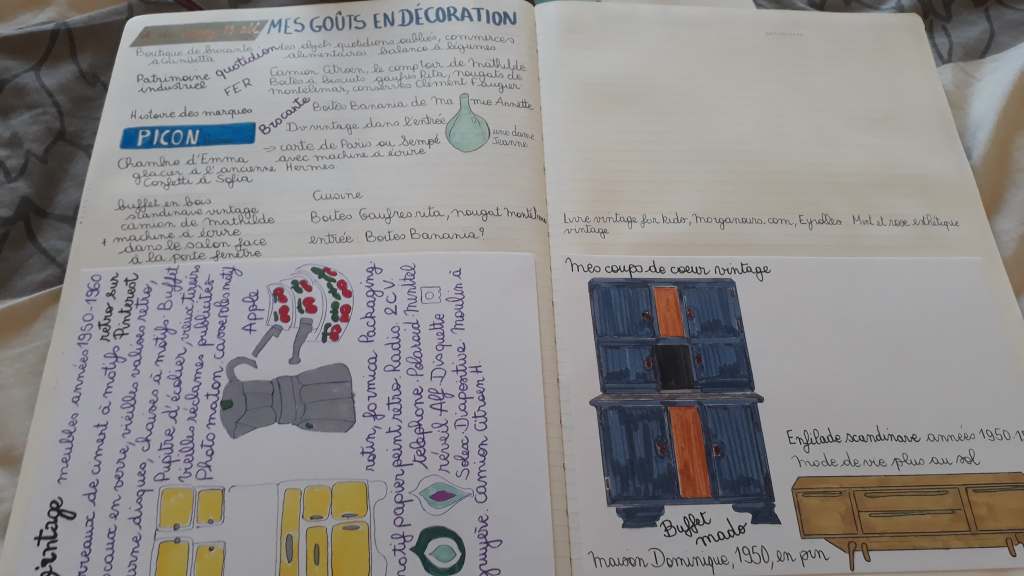 MES GOÛTS EN DÉCORATION
Boutique de brocante
des objets quotidiens oubliés, commerces
alimentaires balance à légumes
Patrimoine
industriel
quotidien
FER
Camion Citroen, le comptoir de Mathilde
Boites à biscuits gaufres Rita, nougats de
montelimar, conserves Clement Faugier
Histoire des marques
Brocante
Boites Banania de Ma mie Annette
PICON
Du vintage dans l'entrée
⇒ carte de Paris ou Sempé
avec machine à écrire
Hermes
une dame
Jeanne
Chambre d'Emma
glacier à l'ancienne
Confetti à Sofia
buffet en bois
scandinave vintage
camion de Mathilde
+ machine à écrire
dans le salon face
à la porte fenêtre
Cuisine
Boites Gaufres rita, nougat
entrée: Boites Banania?
vintage meubles années 1950-1960
retro sur
Pinterest
carreaux de ciment à motifs
en verre, vieilles valises retro,
disques, chaises à motifs Buffet
Pupitre d'écolier, vieux tiroirs
vieilles reclames publicites
Photomaton casseroles
Apple
rotin, formica Packaging
motif papier peint retro Radio 2CV.
telephone Polaroid Minitel
réveil Alf Disquette
Solex Diapositive Moulin à
gruyère. camion citroen H.
Livre vintage for kids, Morganours.com, Eyrolles. Mint et rose esthétique
vintage
Mes coups de coeur vintage
Buffet
mado
Maison Dominique, 1950, en pin
Enfilade scandinave années 1950-
Mode de vie plus au sol